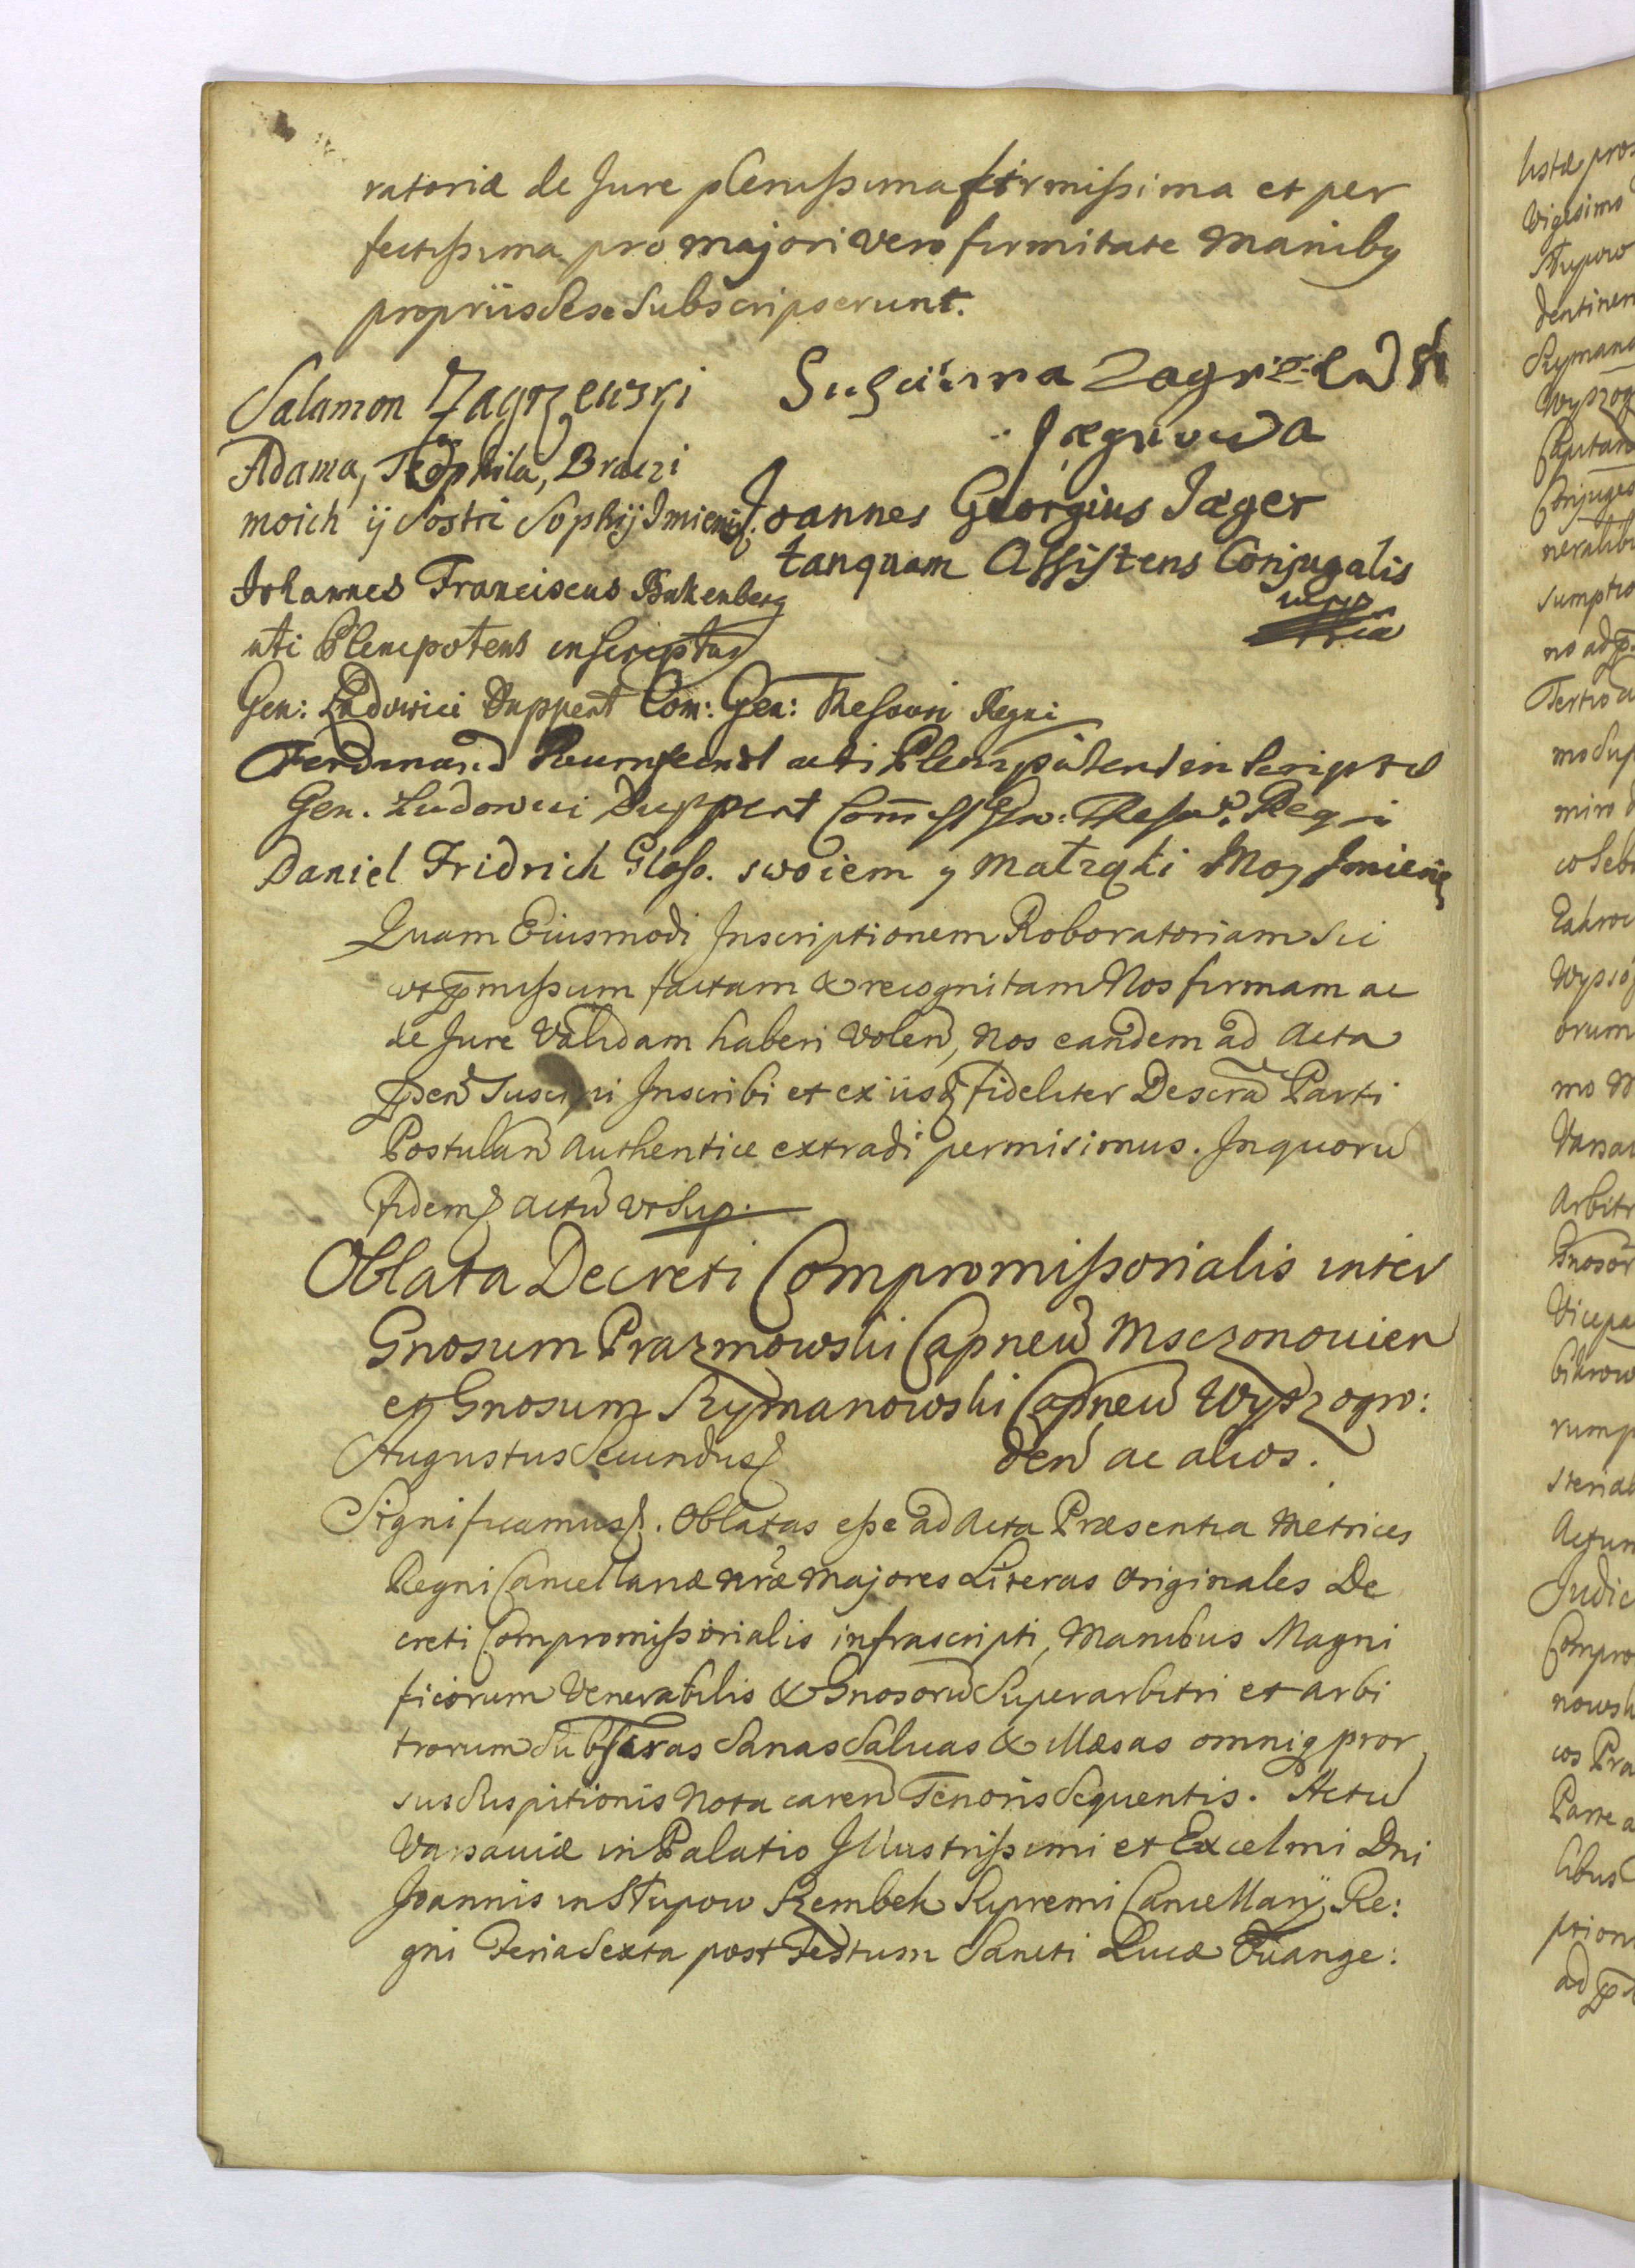 ratoriæ de Jure plenissima firmissima et per
fectissima pro majori vero firmitate Manibꝯ
propriis sese Subscripserunt.
Salamon Zagrzewski
Adama, Teophila, Braczi
moich ÿ Sostri Sophÿ Imieniē
Johannes Franciscus
uti Plenipotens inscriptus
Gen: Ludovici Duppert Com: Gen: Thesauri Regni
Zagrzewsk
Jægrowa
Joannes Georgius Jæger
tanquam Assistens Conjugalis
mpp
Ferdinand uti Plenipotent inscriptus
Gen. Ludowici Duppert Com̄ Gen: Thesa: Regni
Daniel Fridrich Gloss. swoiem y Małząki Moy Imieniē
Quam Eiusmodi Inscriptionem Roboratoriam sic
ut p̄missum factam & recognitam Nos firmam ac
de Jure Validam haberi volen̄, Nos eandem ad Acta
p̄̄sen̄ suscipi Inscribi et ex iisdꝫ fideliter Descrā Parti
Postulan̄ Authentice extradi permisimus. In quorū
fidem Actū ut Sup.
Oblata Decreti Compromissorialis inter
Gnosum Prazmowski Capneū Msczonouien
et Gnosum Szymanowski Capneū Wyszogro:
den̄ ac alios.
Augustus Secundus
Significamus. Oblatas esse ad Acta Præsentia Metrices
Regni Cancellariæ nr̄æ Majores Literas Originales De
creti Compromissorialis infrascripti, Manibus Magni
ficorum Venerabilis & Gnosorū Superarbitri et arbi
trorum Subscras Sanas Saluas & illæsas omniqꝫ pror
sus Suspitionis Nota caren̄ Tenoris Sequentis. Actū
Varsauiæ in Palatio Illustrissimi et Excelmi Dni
Joannis in Słupow Szembek Supremi Cancellarÿ Re:
gni Feria Sexta post Festum Sancti Lucæ Euange: